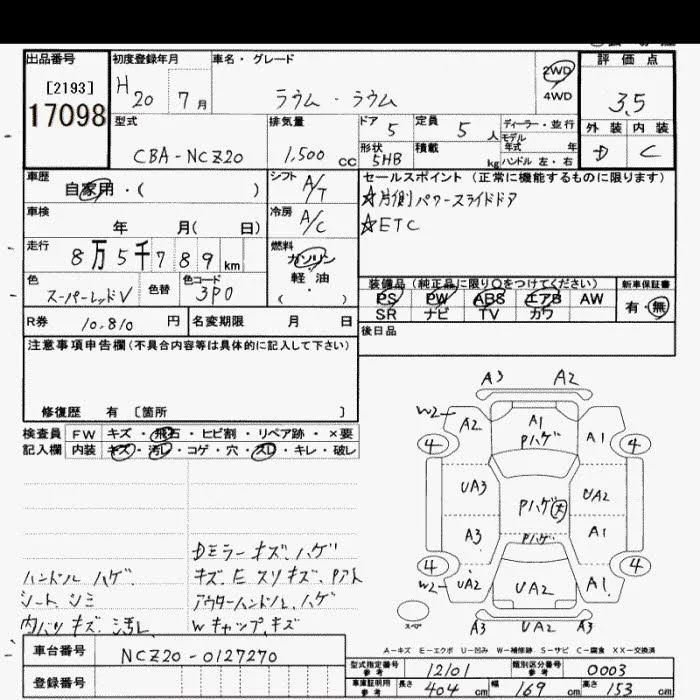 出品番号
[2193]
17098
初度登録年月
H 20 7 月
車名・グレード
ラウム・ラウム
2WD
4WD
評価点
3.5
外装 内装
D C
型式
CBA-NCZ20
排気量
1,500 CC
ドア 5
定員 5 人
形状 5HB
積載 kg
ディーラー・並行
モデル年式 年
ハンドル 左・右
車歴
自家用・( )
シフト A/T
車検
年 月( 日)
冷房 A/C
走行
8万5千789km
燃料
ガソリン
軽・油
( )
色
スーパーレッドV
色替
色コード
3P0
セールスポイント(正常に機能するものに限ります)
☆片側パワースライドドア
☆ETC
装備品(純正品に限り〇をつけてください)
PS PW ABS エアB AW
SR ナビ TV カワ
新車保証書
有・無
R券 10,810 円
名変期限 月 日
後日品
注意事項申告欄(不具合内容等は具体的に記入して下さい)
修復歴 有 〔箇所 〕
検査員 FW キズ・飛石・ヒビ割・リペア跡・×要
記入欄 内装 キズ・汚レ・コゲ・穴・スレ・キレ・破レ
Dミラーキズ、ハゲ
ハンドル ハゲ、
キズ、E スリキズ、Pアト
シート シミ
アウターハンドル、ハゲ
内バリ キズ、汚レ
Wキャップ、キズ
A3 A2
W2 A2 A1 Pハゲ A1
4 4
UA3 Pハゲ大 UA2
A3 Pハゲ A1
4 4
W2 UA2 UA2 A1
スペ A3 UA2 A3
A-キズ E-エクボ U-凹み W-補修跡 S-サビ C-腐食 XX-交換済
車台番号 NCZ20-0127270
登録番号
型式指定番号 参考 12101
類別区分番号 参考 0003
車庫証明用 参考 長さ 404 cm 幅 169 cm 高さ 153 cm